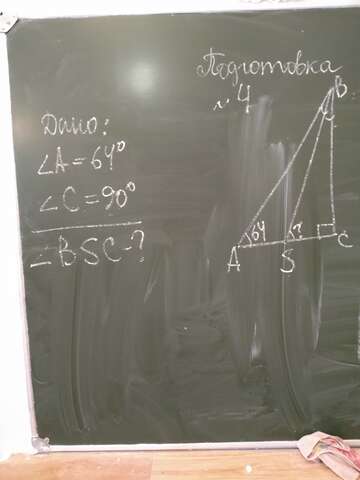 Подготовка
№4
Дано:
∠A=64°
∠C=90°
∠BSC-?
B
64
?
A
S
C